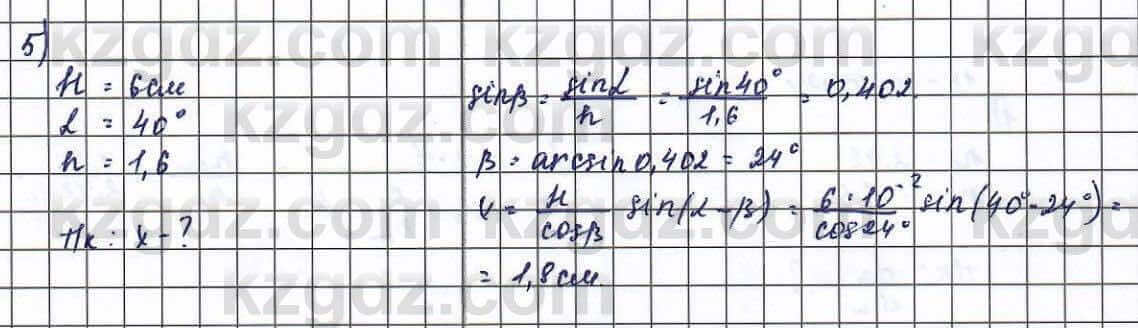 5)
H = 6см
α = 40°
n = 1,6
Тк: x - ?
sinβ = sinα / n = sin40° / 1,6 = 0,402.
β = arcsin 0,402 = 24°
x = H / cosβ sin(α - β) = 6·10⁻² / cos24° sin(40° - 24°) =
= 1,8см.
kzgdz.com
kzgdz.com
kzgdz.com
kzgdz.com
kzgdz.com
kzgdz.com